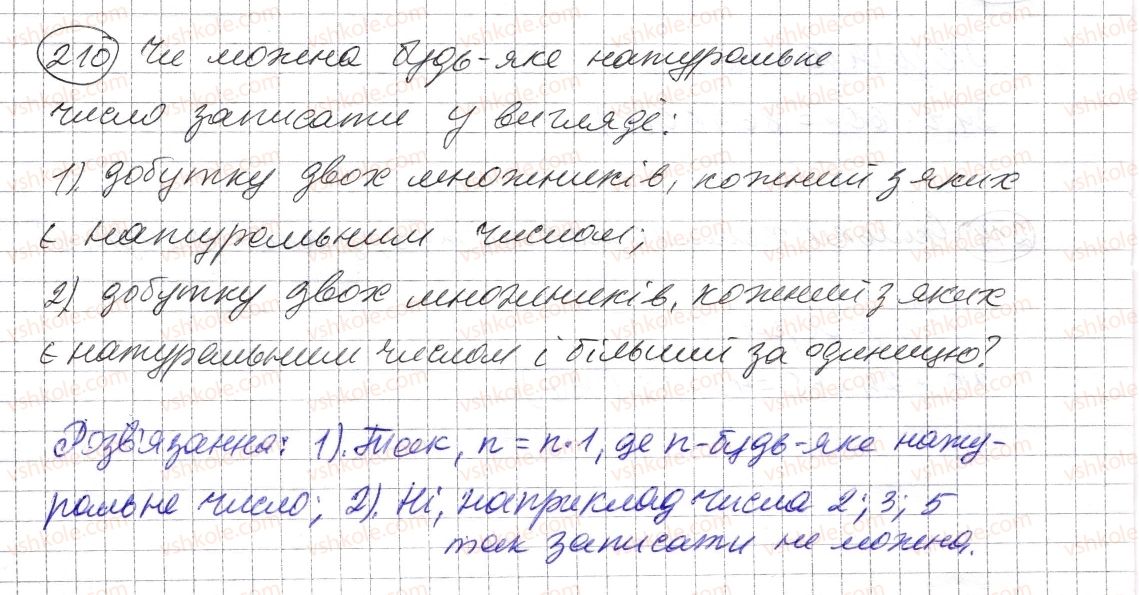 210 Чи можна будь-яке натуральне
число записати у вигляді:
1) добутку двох множників, кожний з яких
є натуральним числом;
2) добутку двох множників, кожний з яких
є натуральним числом і більший за одиницю?
Розв'язання: 1). Так, n = n·1, де n-будь-яке нату-
ральне число; 2). Ні, наприклад числа 2; 3; 5
так записати не можна.